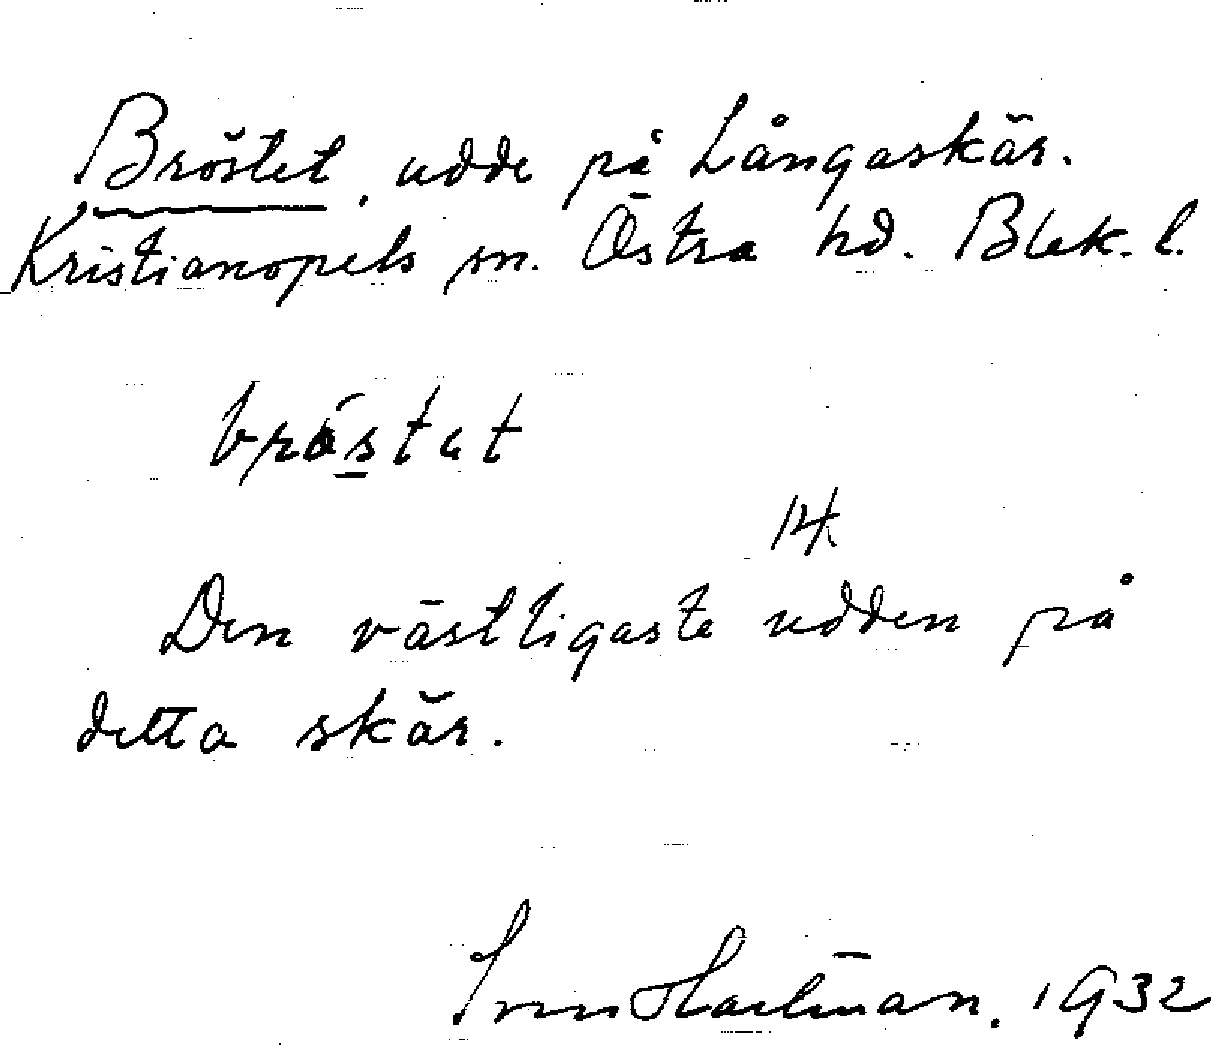 Bröstet, udde på Långaskär.
Kristianopels sn. Östra hd. Blek. l.
bröstat
14
Den västligaste udden på
detta skär.
Sven Hartman. 1932